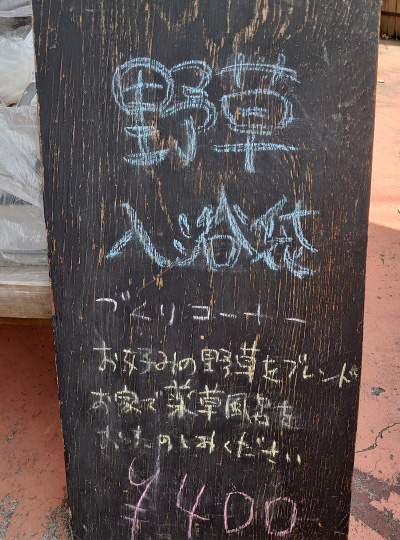 野草
入浴袋
づくりコーナー
お好みの野草をブレンド
お家で薬草風呂を
おたのしみください
¥400